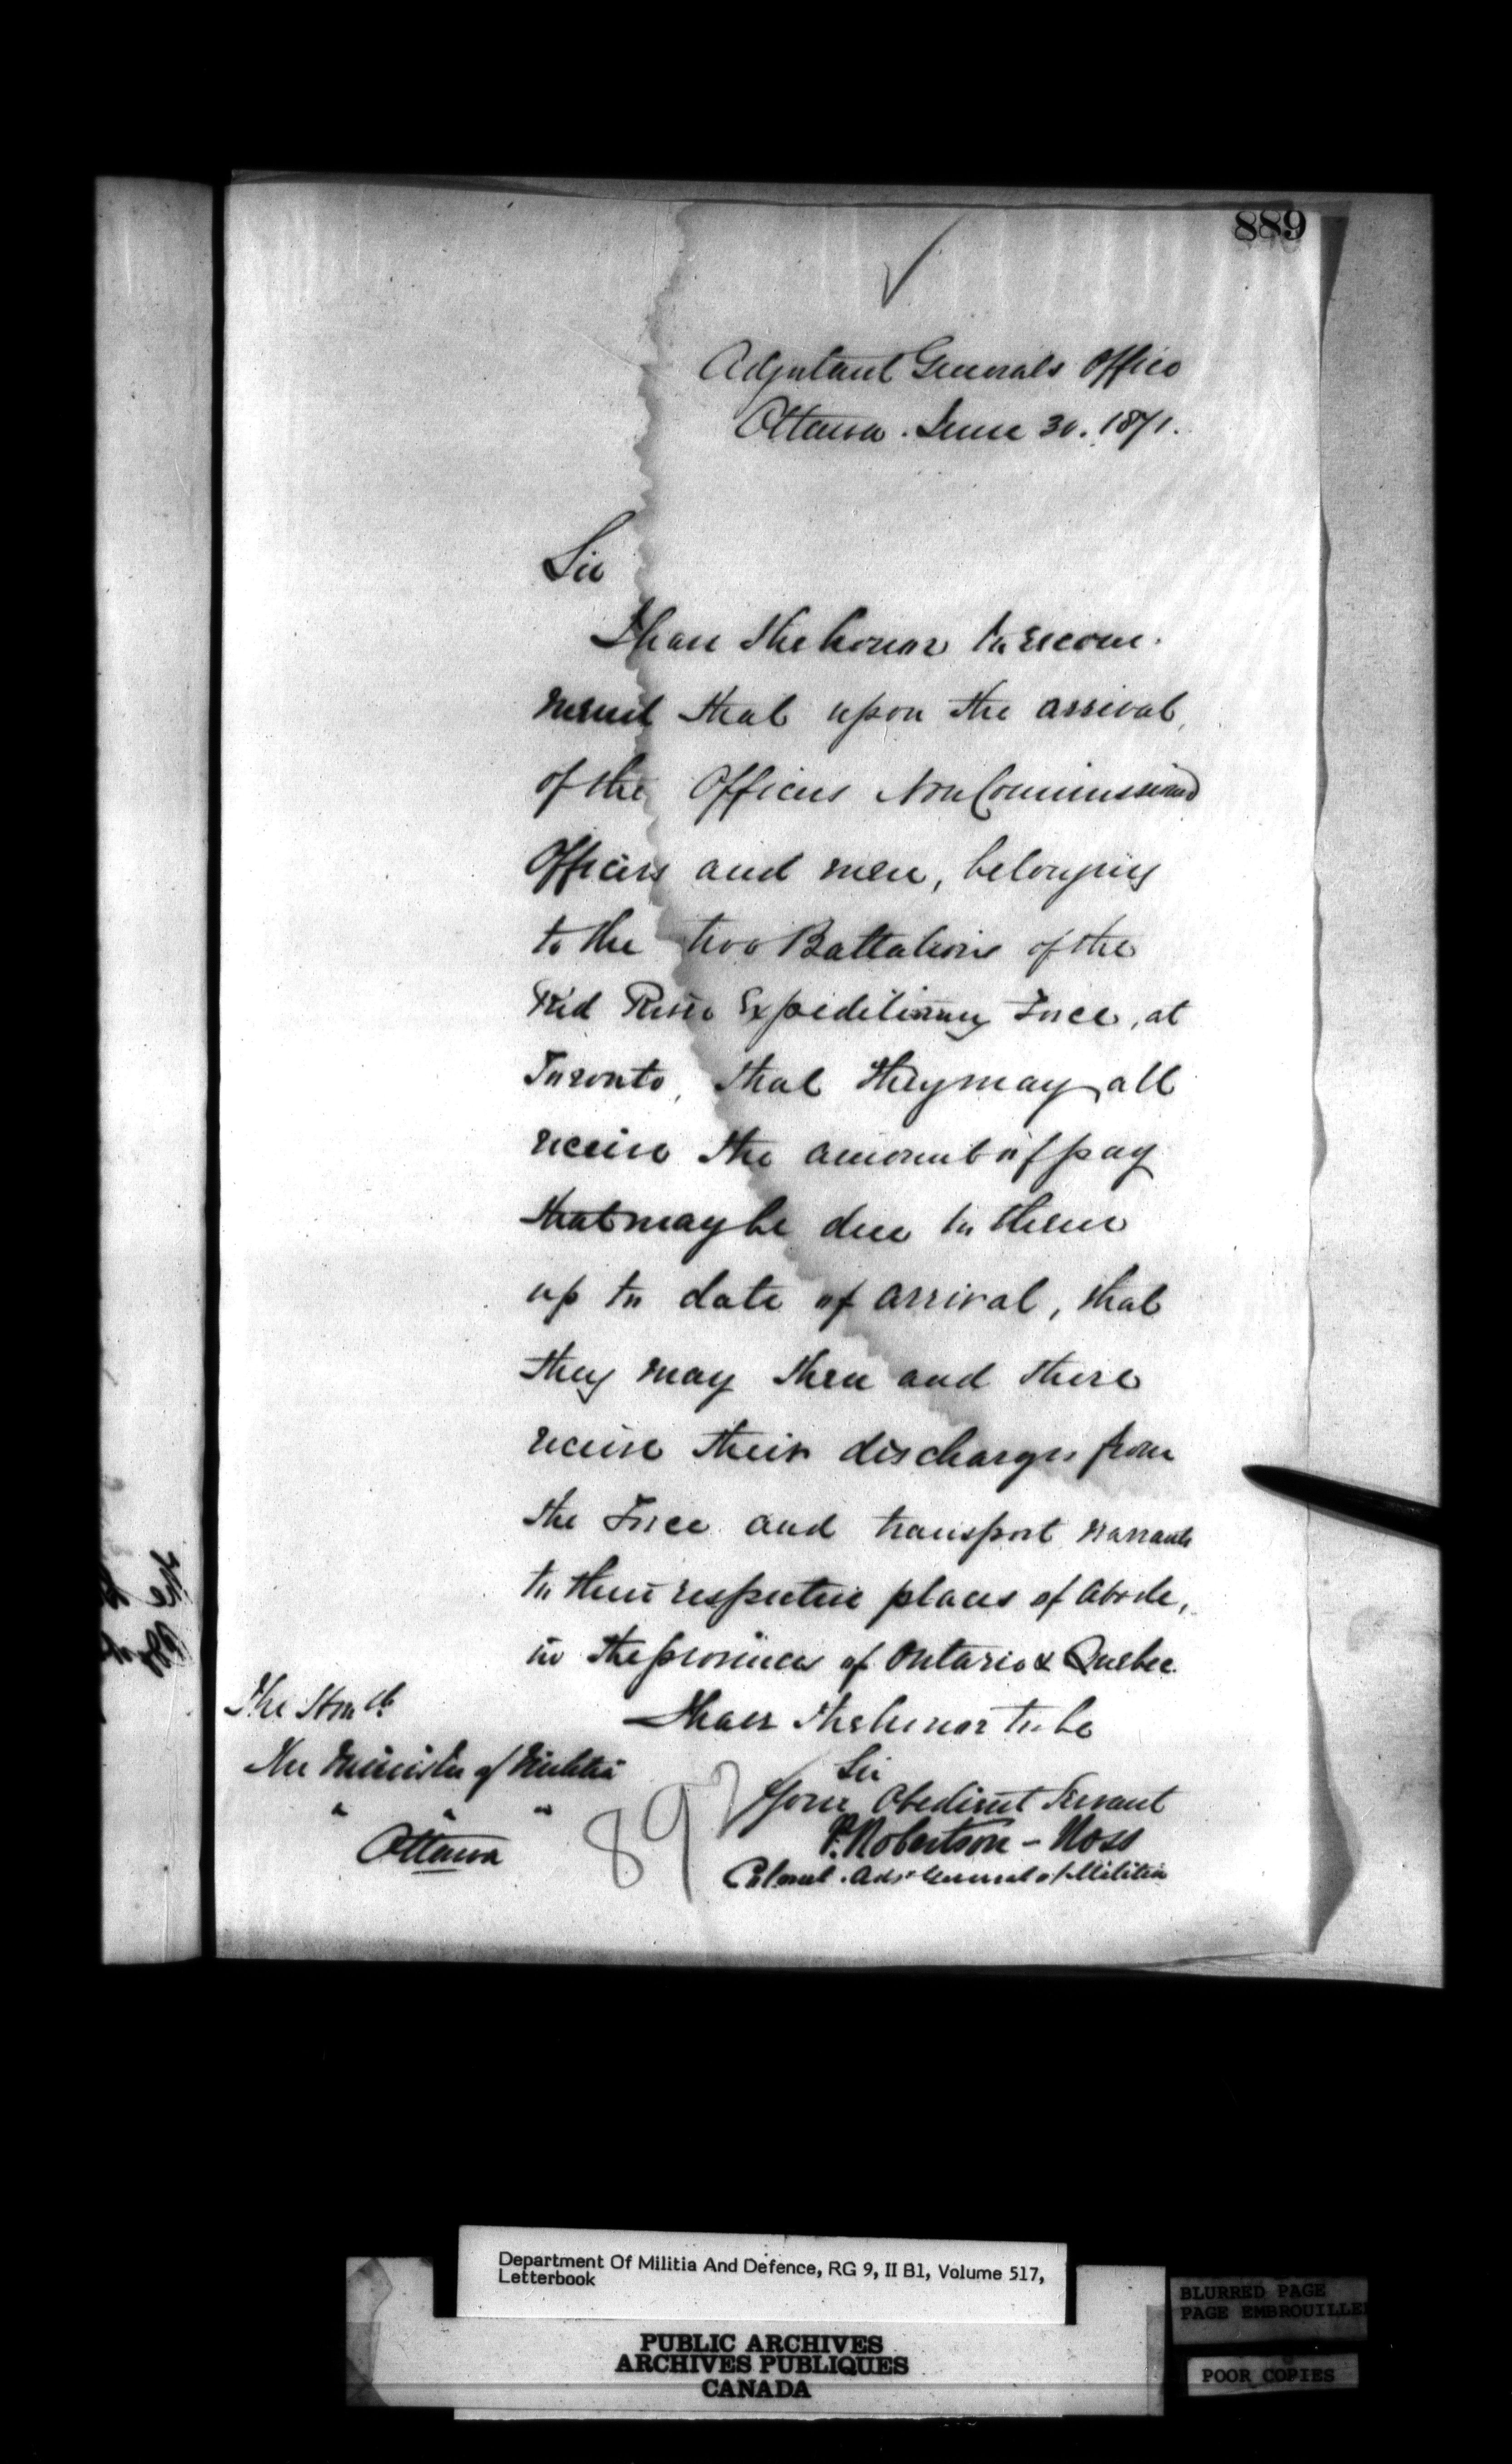 889
Adjutant Generals Office
Ottawa. June 30. 1871.
Sir
I have the honor to recom-
mend that upon the arrival,
of the Officers Non Commissioned
Officers and men, belonging
to the two Battalions of the
Red River Expeditionary Force, at
Toronto, that they may all
receive the amount of pay
that may be due to them
up to date of arrival, that
they may then and there
receive their discharges from
the Force and transport warrants
to their respective places of abode,
in the provinces of Ontario & Quebec.
I have the honor to be
Sir
Your Obedient Servant
P. Robertson-Ross
Colonel. Adjt General of Militia
The Honble
The Minister of Militia
" " "
Ottawa
892
Department Of Militia And Defence, RG 9, II B1, Volume 517,
Letterbook
PUBLIC ARCHIVES
ARCHIVES PUBLIQUES
CANADA
BLURRED PAGE
PAGE EMBROUILLEE
POOR COPIES